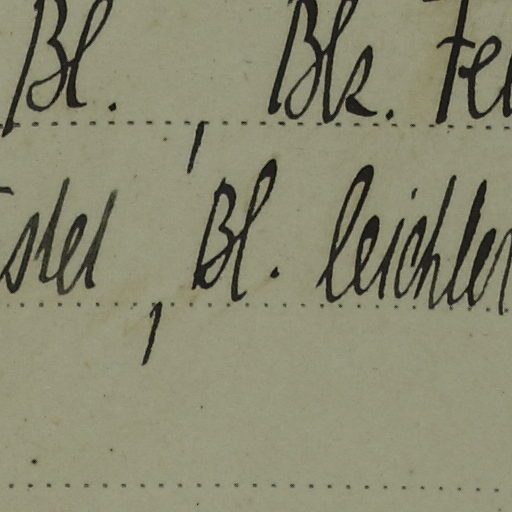 Bl. , Bls. Fel
stel , Bl. leichter